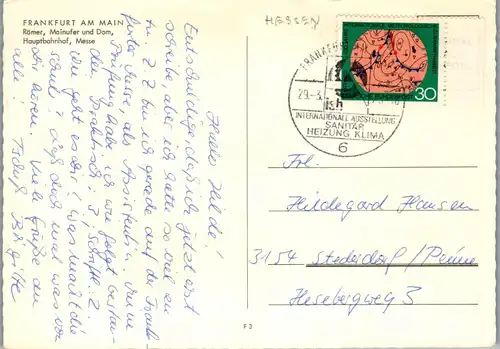 FRANKFURT AM MAIN
Römer, Mainufer und Dom,
Hauptbahnhof, Messe
HESSEN
30
29.-3.
ish
INTERNATIONALE AUSSTELLUNG
SANITÄR
HEIZUNG KLIMA
6
Hallo Hilde!
Entschuldige, daß ich jetzt erst
schreibe, aber ich hatte so viel zu
tun. Z. Z. bin ich gerade auf der Frank-
furter Messe, als Assistentin. Meine
Prüfung habe ich wie folgt bestan-
den. Praktisch: 2 Schriftl. 2.
Wie geht es dir? Was macht die
Schule? Laß doch mal was von
dir hören. Viele Grüße an
alle!
Tschüß Birgitte
F 3
Frl.
Hildegard Hansen
3154 Stederdorf / Peine
Hesebergweg 3